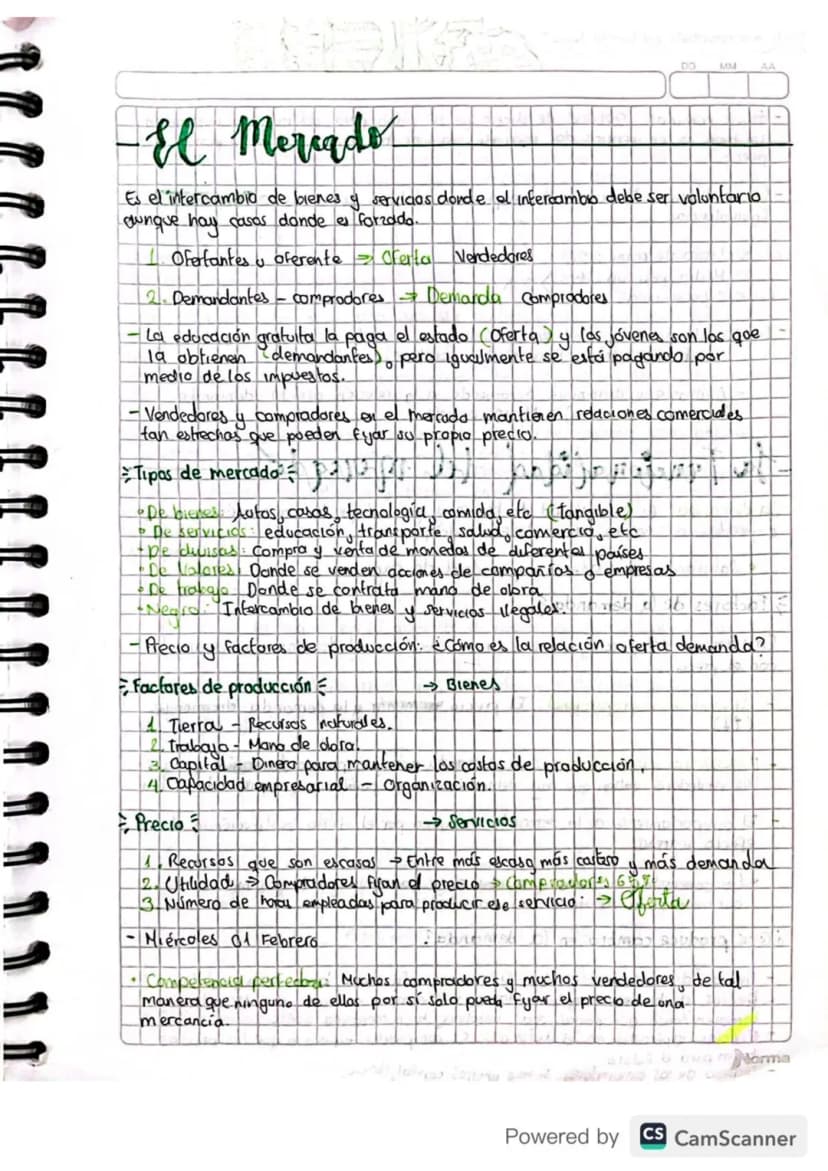 DD MM AA
El Mercado
Es el intercambio de bienes y servicios donde el intercambio debe ser voluntario
aunque hay casos donde es forzado.
1. Ofertantes u oferente → Oferta Vendedores
2. Demandantes - compradores → Demanda compradores
- La educación gratuita la paga el estado (oferta) y los jóvenes son los que
la obtienen (demandantes), pero igualmente se está pagando por
medio de los impuestos.
- Vendedores y compradores en el mercado mantienen relaciones comerciales
tan estrechas que pueden fijar su propio precio.
Tipos de mercado
• De bienes: Autos, casas, tecnología, comida, etc (tangible)
• De servicios: educación, transporte, salud, comercio, etc
• De divisas: Compra y venta de monedas de diferentes países
• De Valores: Donde se venden acciones de compañías o empresas
• De trabajo: Donde se contrata mano de obra
• Negro: Intercambio de bienes y servicios ilegales.
- Precio y factores de producción: ¿Cómo es la relación oferta demanda?
Factores de producción → Bienes
1. Tierra - Recursos naturales.
2. Trabajo - Mano de obra.
3. Capital - Dinero para mantener los costos de producción.
4. Capacidad empresarial - Organización.
Precio → Servicios
1. Recursos que son escasos → Entre más escaso más costoso y más demanda
2. Utilidad → Compradores fijan el precio → Compradores
3. Número de horas empleadas para producir ese servicio: → Oferta
- Miércoles 01 Febrero
• Competencia perfecta: Muchos compradores y muchos vendedores, de tal
manera que ninguno de ellos por sí solo pueda fijar el precio de una
mercancía.
Norma
Powered by CS CamScanner